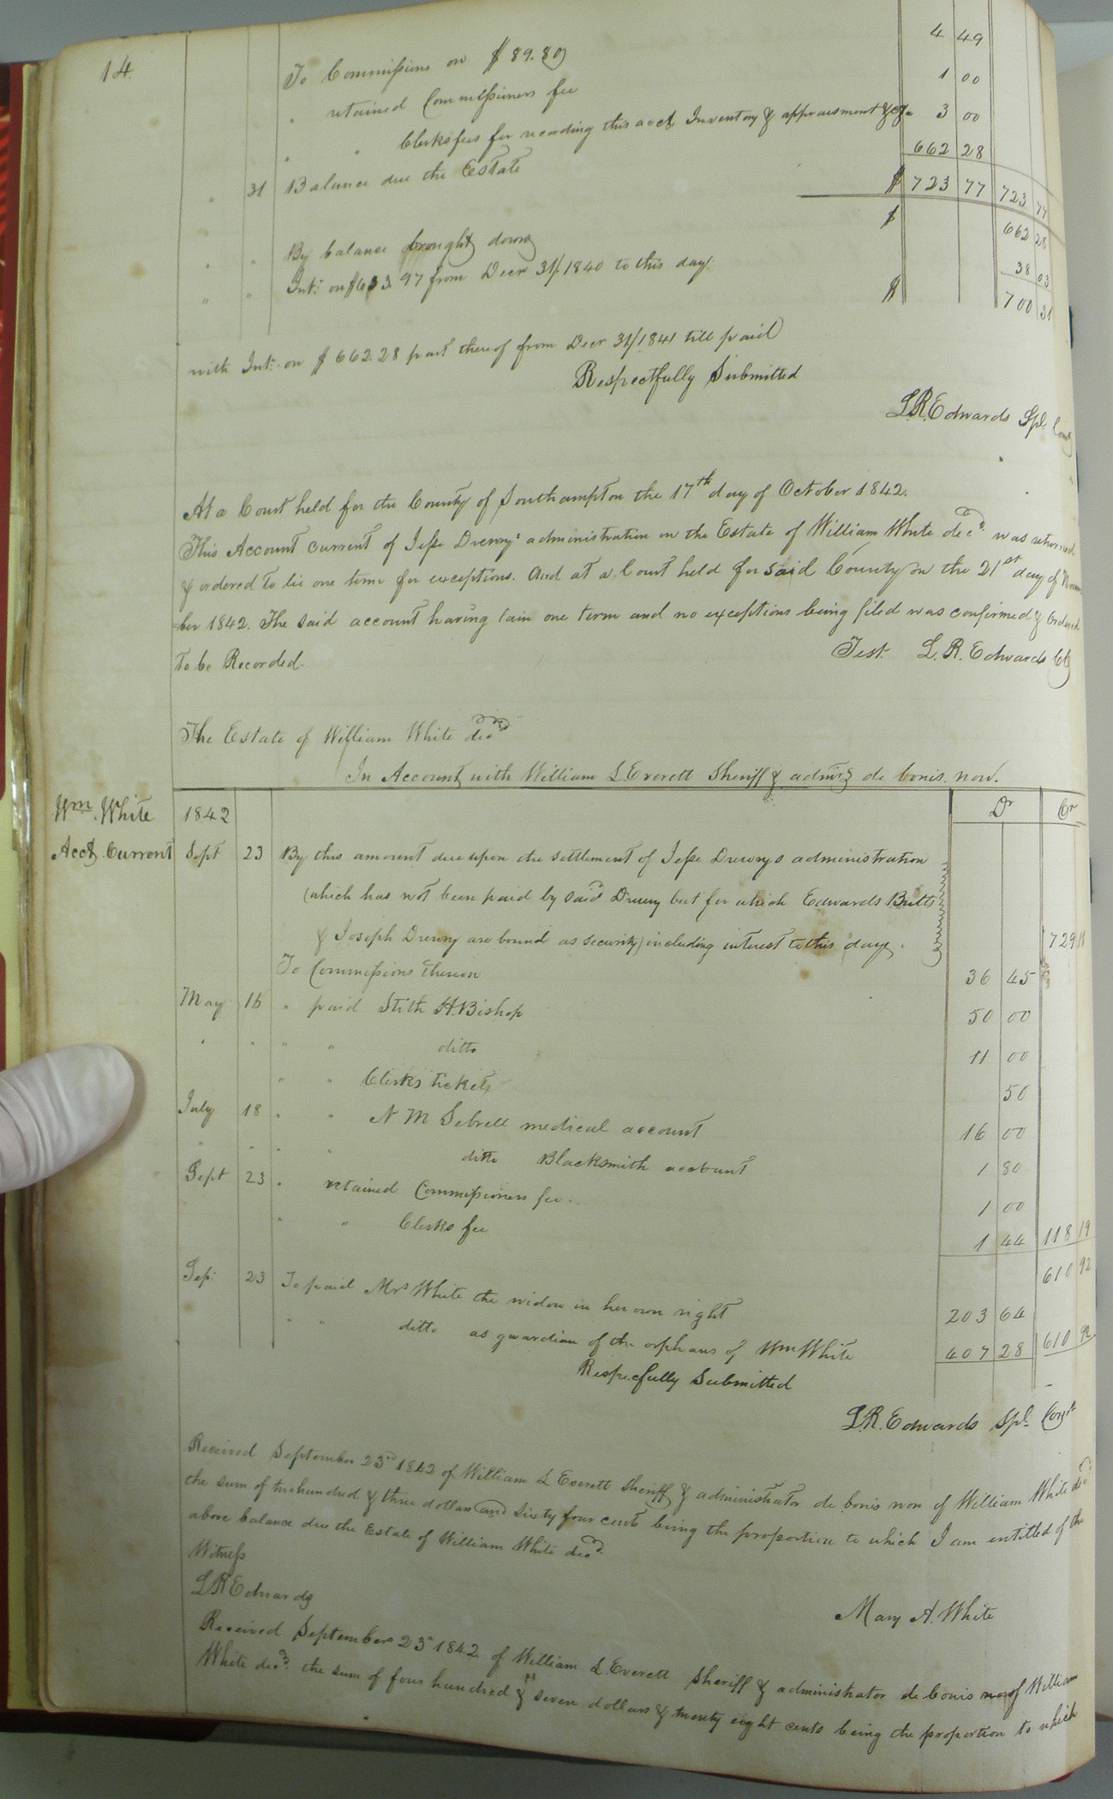 14
To Commissions on $89.89 4 49
" retained Commissioners fee 1 00
" " Clerks fees for recording this acct Inventory & appraisment &c 3 00
" 31 Balance due the Estate 662 28
$ 723 77 723 77
" " By balance brought down $ 662 28
" " Int: on $633.97 from Decr 31/1840 to this day. 38 03
$ 700 31
with Int: on $662.28 part thereof from Decr 31/1841 till paid
Respectfully Submitted
L.R. Edwards Spl. Com
At a Court held for the County of Southampton the 17th day of October 1842.
This Account current of Jesse Drewrys administration on the Estate of William White decd. was returned
& ordered to lie one term for exceptions. And at a Court held for said County on the 21st day of Novem
ber 1842. The said account having lain one term and no exceptions being filed was confirmed & Ordered
to be Recorded.
Test. L. R. Edwards Clk
The Estate of William White decd
In Account with William L Everett Sheriff & admr de bonis non.
Wm. White 1842 Dr Cr
Acct Current Sept 23 By this amount due upon the settlement of Jesse Drewrys administration
(which has not been paid by said Drewry but for which Edwards Butts
& Joseph Drewry are bound as security) including interest to this day. 729
To Commissions thereon 36 45
May 16 " paid Stith H. Bishop 50 00
" " " " ditto 11 00
" " Clerks tickets 50
July 18 " " N M Sebrell medical account 16 00
" " " ditto Blacksmith account 1 80
Sept 23 " retained Commissioners fee. 1 00
" " Clerks fee 1 44 118 19
610 92
Sep: 23 To paid Mrs White the widow in her own right 203 64
" " ditto as guardian of the orphans of Wm White 407 28 610 92
Respecfully Submitted
L.R. Edwards Spl. Comr
Received September 23rd 1842 of William L Everett Sheriff & administrator de bonis non of William White decd
the sum of two hundred & three dollars and sixty four cents being the proportion to which I am entitled of the
above balance due the Estate of William White decd.
Witness
L R Edwards
Mary A. White
Received September 23rd 1842 of William L Everett Sheriff & administrator de bonis non of William
White decd. the sum of four hundred & seven dollars & twenty eight cents being the proportion to which